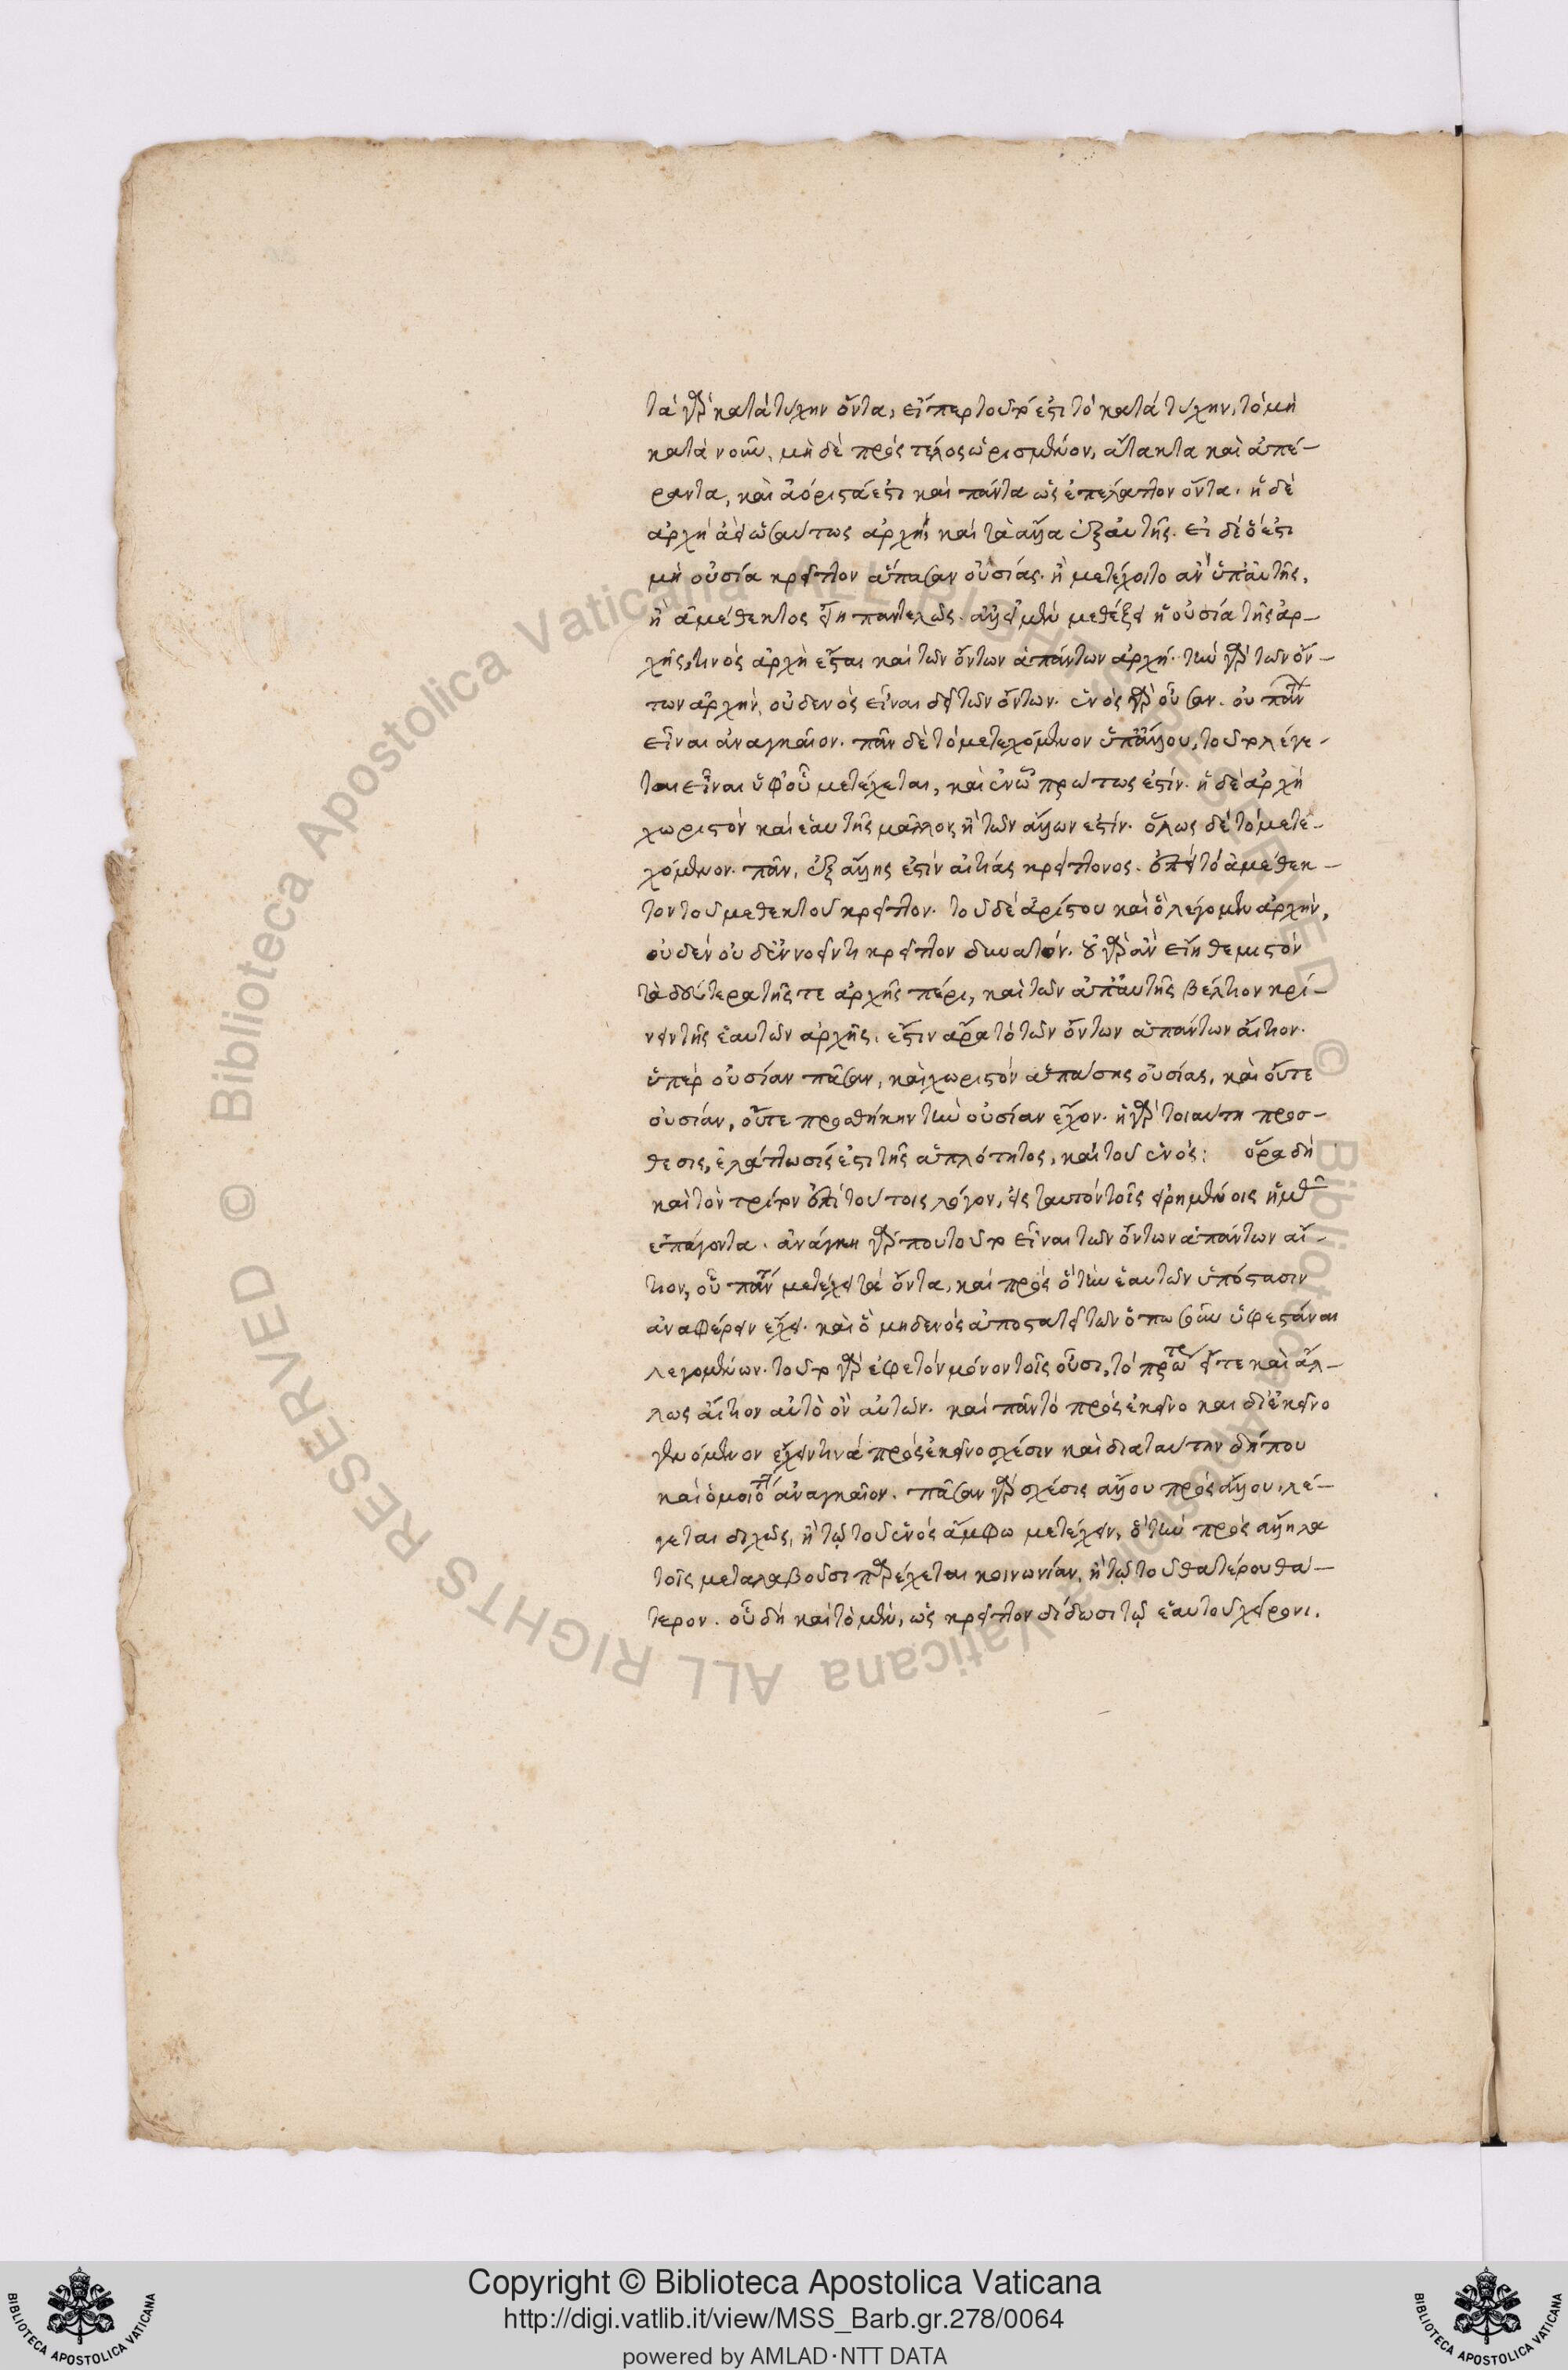 τὰ γὰρ κατὰ τύχην ὄντα, εἴπερ τοῦτό ἐστι τὸ κατὰ τύχην, τὸ μὴ
κατὰ νοῦν, μὴ δὲ πρὸς τέλος ὡρισμένον, ἄτακτα καὶ ἀπέ-
ραντα, καὶ ἀόριστά ἐστι καὶ πάντα ὡς ἐπ' ἔλαττον ὄντα. ἡ δὲ
ἀρχὴ ἀεὶ ὡσαύτως ἀρχή, καὶ τὰ ἄλλα ἐξ αὐτῆς. εἰ δέ ὅ ἐστι
μὴ οὐσία κρεῖττον ἁπάσαν οὐσίας. ἢ μετέχοιτο ἂν ὑπ' αὐτῆς,
ἢ ἀμέθεκτος εἴη παντελῶς. ἀλλ' εἰ μὲν μεθέξει ἡ οὐσία τῆς ἀρ-
χῆς, τινὸς ἀρχὴ ἔσται καὶ τῶν ὄντων ἁπάντων ἀρχή. τὴν γὰρ τῶν ὄν-
των ἀρχὴν, οὐδενὸς εἶναι δεῖ τῶν ὄντων. ἑνὸς γὰρ οὖσαν. οὐ πάντων
εἶναι ἀναγκαῖον. πᾶν δὲ τὸ μετεχόμενον ὑπ' ἄλλου, τούτου λέγε-
ται εἶναι ὑφ' οὗ μετέχεται, καὶ ἐν ᾧ πρώτως ἐστίν. ἡ δὲ ἀρχὴ
χωριστὸν καὶ ἑαυτῆς μᾶλλον ἢ τῶν ἄλλων ἐστίν. ὅλως δὲ τὸ μετε-
χόμενον πᾶν, ἐξ ἄλλης ἐστὶν αἰτίας κρείττονος. ἐπεὶ τὸ ἀμέθεκ-
τον τοῦ μεθεκτοῦ κρεῖττον. τοῦ δὲ ἀρίστου καὶ ὃ λέγομεν ἀρχὴν,
οὐδὲν οὐδ' ἐννοεῖν τι κρεῖττον δυνατόν. οὐ γὰρ ἂν εἴη θεμιτὸν
τὰ δεύτερα τῆς τε ἀρχῆς πέρι, καὶ τῶν ἀπ' αὐτῆς βέλτιον κρί-
νειν τῆς ἑαυτῶν ἀρχῆς. ἔστιν ἄρα τὸ τῶν ὄντων ἁπάντων αἴτιον.
ὑπὲρ οὐσίαν πᾶσαν, καὶ χωριστὸν ἁπάσης οὐσίας, καὶ οὔτε
οὐσίαν, οὔτε προσθήκην τὴν οὐσίαν ἔχον. ἡ γὰρ τοιαύτη προσ-
θεσις, ἐλάττωσίς ἐστι τῆς ἁπλότητος, καὶ τοῦ ἑνός: ὅρα δὴ
καὶ τὸν τρίτον ἐπὶ τούτοις λόγον, εἰς ταυτὸν τοῖς εἰρημένοις ἡμᾶς
ἐπάγοντα. ἀνάγκη γάρ που τοῦτο εἶναι τῶν ὄντων ἁπάντων αἴ-
τιον, οὗ πάντα μετέχει τὰ ὄντα, καὶ πρὸς ὃ τὴν ἑαυτῶν ὑπόστασιν
ἀναφέρειν ἔχει. καὶ ὃ μηδενὸς ἀποστατεῖ τῶν ὁπωσοῦν ὑφεστάναι
λεγομένων. τοῦτο γὰρ ἐφετὸν μόνον τοῖς οὖσι, τὸ πρώτως εἴτε καὶ ἄλ-
λως αἴτιον αὐτὸ ὂν αὐτῶν. καὶ πᾶν τὸ πρὸς ἐκεῖνο καὶ δι' ἐκεῖνο
γενόμενον ἔχειν τινὰ πρὸς ἐκεῖνο σχέσιν καὶ διὰ ταύτην δήπου
καὶ ὁμοιότητα ἀναγκαῖον. πᾶσαν γὰρ σχέσις ἄλλου πρὸς ἄλλου, λέ-
γεται διχῶς, ἢ τῷ τοῦ ἑνὸς ἄμφω μετέχειν, ὃ τὴν πρὸς ἄλληλα
τοῖς μεταλαβοῦσι παρέχεται κοινωνίαν, ἢ τῷ τοῦ θατέρου θά-
τερον. οὗ δὴ καὶ τὸ μὲν, ὡς κρεῖττον δίδωσι τῷ ἑαυτοῦ χείρονι.
Copyright © Biblioteca Apostolica Vaticana
http://digi.vatlib.it/view/MSS_Barb.gr.278/0064
powered by AMLAD·NTT DATA